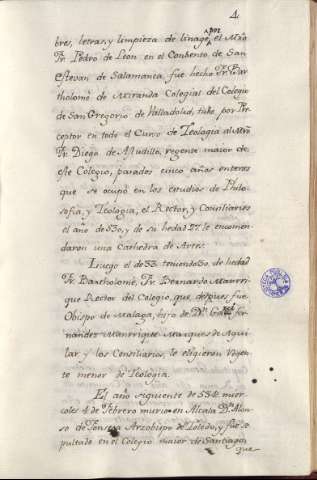 4
bres, letras, y limpieza de linage, por el Mtro
Fr. Pedro de Leon en el Conbento de San
Estevan de Salamanca, fue hecho Fr. Bar
tholomé de Miranda Colegial del Colegio
de San Gregorio de Valladolid, tubo por Pre
ceptor en todo el Curso de Teologia al Mtro
Fr. Diego de Astudillo, regente maior de
este Colegio, pasados cinco años enteros
que se ocupó en los estudios de Philo
sofia, y Teologia, el Rector, y Consiliarios
el año de 530, y de su hedad 27 le encomen
daron una Cathedra de Artes.
Luego el de 33 teniendo 30. de hedad
Fr. Bartholomé, Fr. Bernardo Manrri
que Rector del Colegio, que despues fue
Obispo de Malaga, hijo de Dn. Garcia fer
nandez Manrrique Marques de Agui
lar y los Consiliarios, le eligieron Regen
te menor de Teologia.
El año siguiente de 534. mier
coles 4 de Febrero murio en Alcala Dn. Alon
so de Fonseca Arzobispo de Toledo, y fue se
pultado en el Colegio maior de Santiago,
que